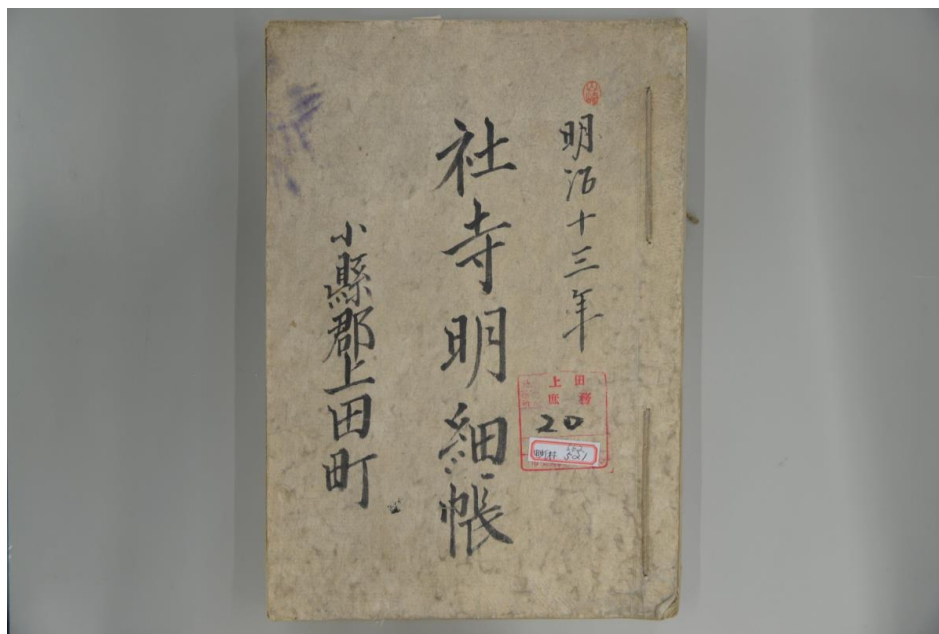 明治十三年
社寺明細帳
小縣郡上田町
上田
庶務
20
旧町村